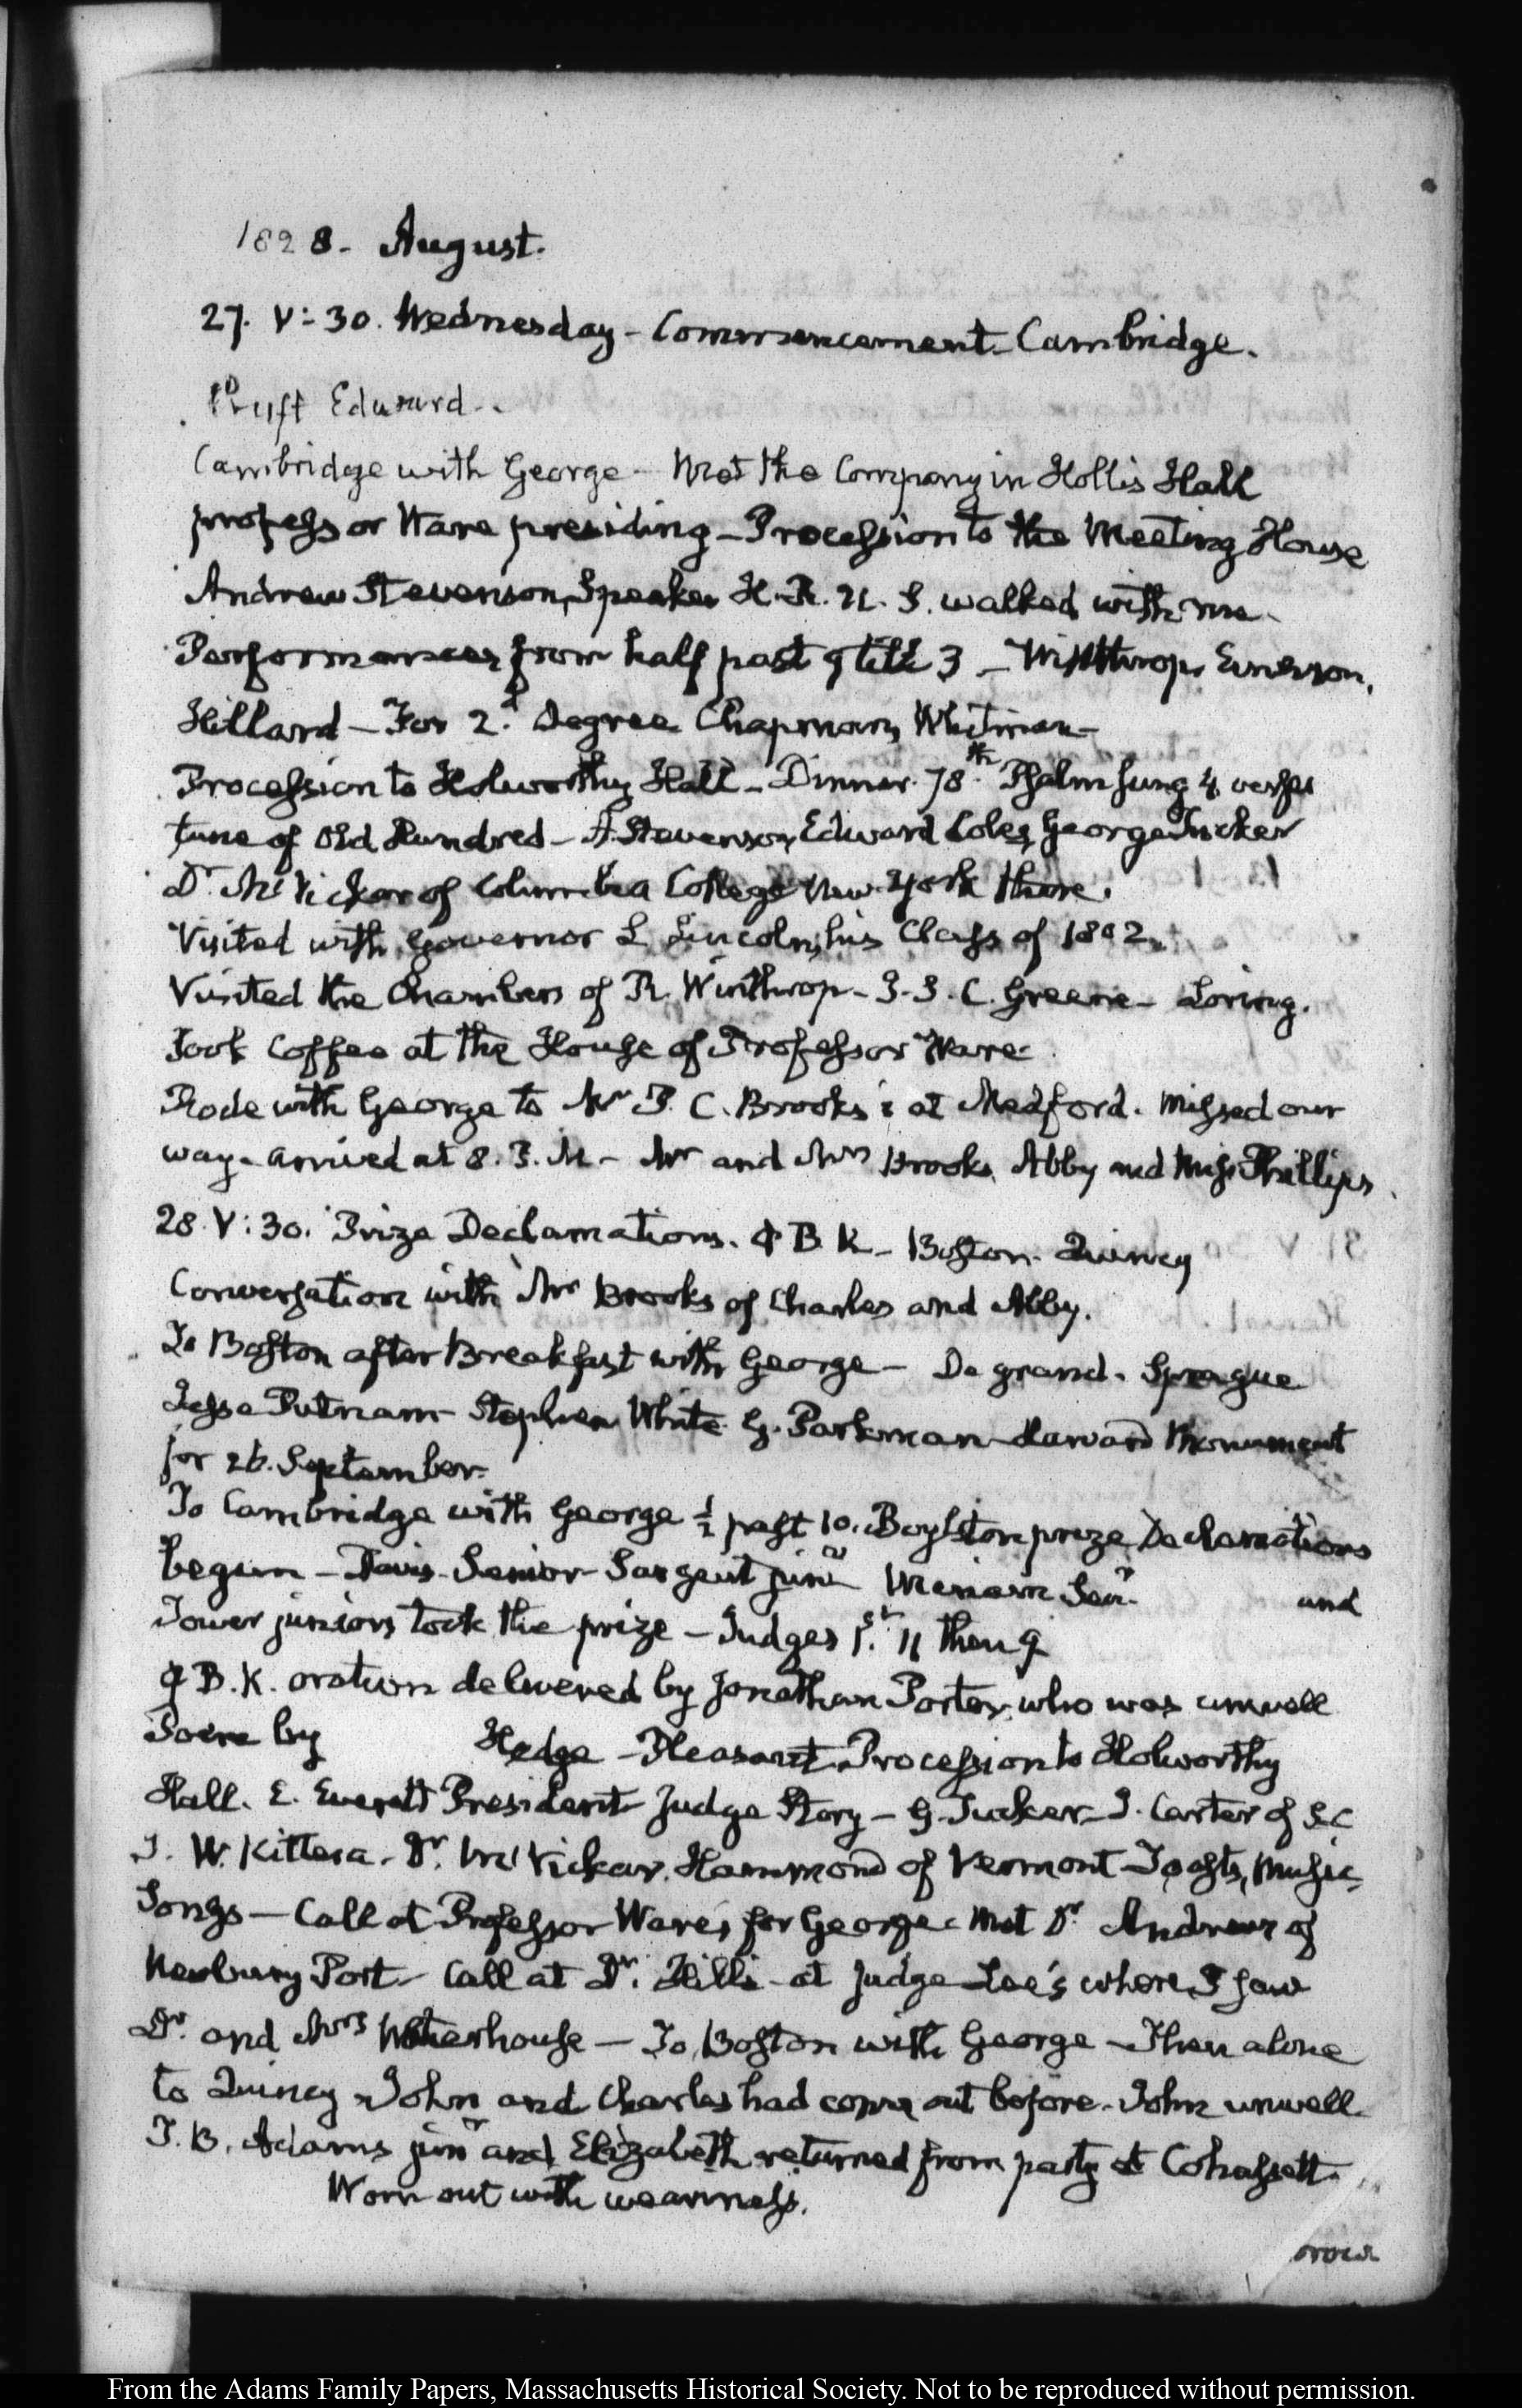 1828. August.
27. V:30. Wednesday - Commencement - Cambridge.
Cruft Edward.
Cambridge with George - Met the Company in Hollis Hall
professor Ware presiding - Procession to the Meeting House
Andrew Stevenson, Speaker H. R. U. S. walked with me -
Performances from half past 9 till 3 - Winthrop. Emerson.
Hillard - For 2.d Degree Chapman, Whitman -
Procession to Holworthy Hall - Dinner. 78.th Psalm sung 4 verses
tune of Old Hundred - A. Stevenson, Edward Coles, George Tucker
Dr. McVickar of Columbia College New York there.
Visited with Governor L. Lincoln, his Class of 1802.
Visited the Chambers of R. Winthrop - J. S. C. Greene - Loring.
Took Coffee at the House of Professor Ware
Rode with George to Mr P. C. Brooks's at Medford. Missed our
way - arrived at 8. P. M - Mr and Mrs Brooks, Abby and Miss Phillips.
28. V:30. Prize Declamations. Φ B. K - Boston - Quincy
Conversation with Mr Brooks of Charles and Abby.
To Boston after Breakfast with George - De grand. Sprague
Jesse Putnam - Stephen White. G. Parkman - Harvard Monument
for 26. September.
To Cambridge with George ½ past 10. Boylston prize Declamations
begun - Davis - Senior - Sargent junr Senr. and
Tower juniors took the prize - Judges 1.st 11 then 9
Φ B. K. oration delivered by Jonathan Porter, who was unwell
Poem by Hedge - Pleasant - Procession to Holworthy
Hall. E. Everett President - Judge Story - G. Tucker - J. Carter of S C
T. W. Kittera - Dr. McVickar. Hammond of Vermont - Toasts, Music
Songs - Call at Professor Ware's for George - Met Dr. Andrews of
Newbury Port - Call at Dr. Hill's - at Judge Lee's where I saw
Dr. and Mrs Waterhouse - To Boston with George - Then alone
to Quincy - John and Charles had come out before - John unwell.
T. B. Adams junr and Elizabeth returned from party at Cohassett.
Worn out with weariness.
From the Adams Family Papers, Massachusetts Historical Society. Not to be reproduced without permission.